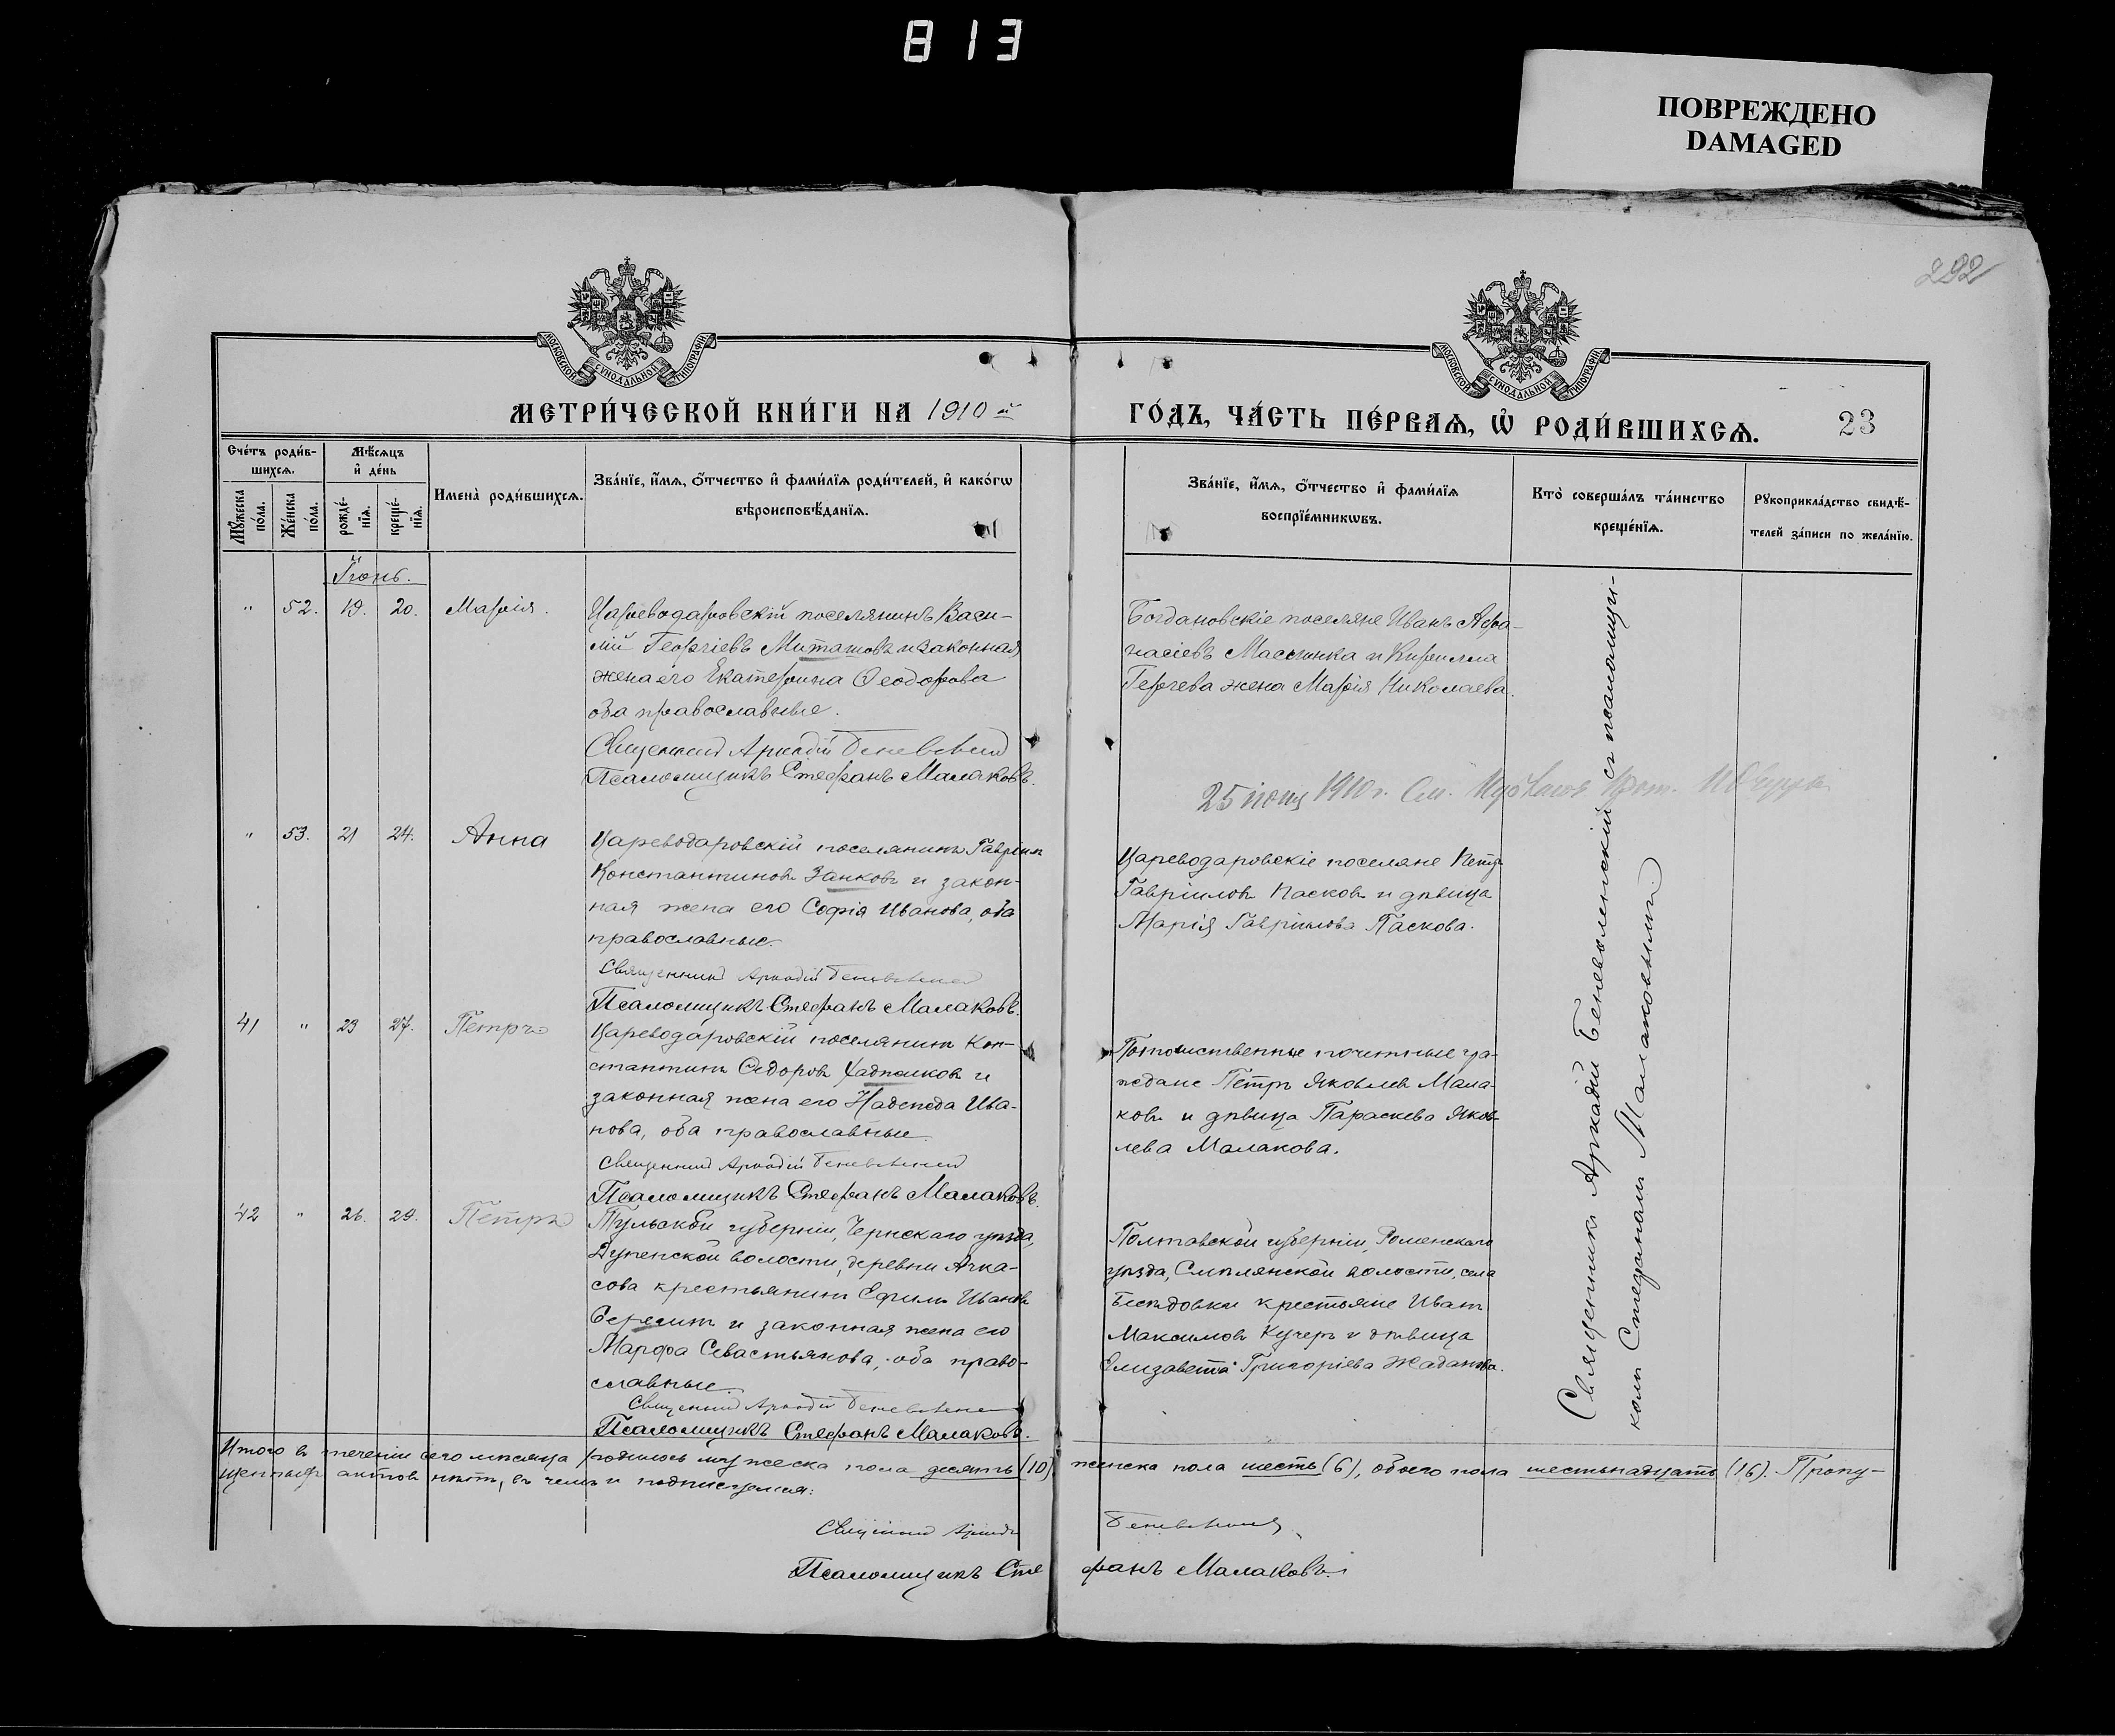 813
ПОВРЕЖДЕНО
DAMAGED
292
МОСКОВСКОЙ СУНОДАЛЬНОЙ ТИПОГРАФІИ
МОСКОВСКОЙ СУНОДАЛЬНОЙ ТИПОГРАФІИ
МЕТРИ́ЧЕСКОЙ КНИ́ГИ НА 1910 й
ГО́ДЪ, ЧА́СТЬ ПЕ́РВАѦ, Ѡ҆ РОДИ́ВШИХСѦ.
23
Сче́тъ роди́в-
шихсѧ.
Мѣ́сѧцъ
и҆ де́нь
Мꙋ́жеска по́ла.
Же́нска по́ла.
рожде́-
нїѧ.
креще́-
нїѧ.
Имена̀ роди́вшихсѧ.
Зва́нїе, и҆́мѧ, ѻ҆́тчество и҆ фами́лїѧ роди́телей, и҆ како́гѡ
вѣроисповѣ́данїѧ.
Зва́нїе, и҆́мѧ, ѻ҆́тчество и҆ фами́лїѧ
воспрїе́мникѡвъ.
Кто̀ соверша́лъ та́инство
креще́нїѧ.
Рꙋкоприкла́дство свидѣ́-
телей за́писи по жела́нїю.
Іюнь.
" 52. 19. 20. Марія.
Цареводаровскій поселянинъ Васи-
лій Георгіевъ Миташовъ и законная
жена его Екатерина Ѳеодорова
оба православные.
Священник Аркадій Беневоленский
Псаломщикъ Стефанъ Малаковъ.
Богдановскіе поселяне Иванъ Афа-
насіевъ Маслинка и Кирилла
Гергева жена Марія Николаева.
25 июня 1910 г. См.
" 53. 21 24. Анна
Цареводаровскій поселянинъ Гавріилъ
Константиновъ Занковъ и закон-
ная жена его Софія Иванова, оба
православные.
Священник Аркадій Беневоленский
Псаломщикъ Стефанъ Малаковъ.
Цареводаровскіе поселяне Петръ
Гавріиловъ Пасковъ и дѣвица
Марія Гавріилова Паскова.
41 " 23 27. Петръ
Цареводаровскій поселянинъ Кон-
стантинъ Ѳедоровъ Хаджиковъ и
законная жена его Надежда Ива-
нова, оба православные.
Священник Аркадій Беневоленский
Псаломщикъ Стефанъ Малаковъ.
Потомственные почетные гра-
ждане Петръ Яковлевъ Мала-
ковъ и дѣвица Параскева Яков-
лева Малакова.
42 " 26. 29. Петръ
Тульской губерніи, Чернскаго уѣзда,
Дупенской волости, деревни Ачка-
сова крестьянинъ Ефимъ Ивановъ
и законная жена его
Марфа Севастьянова, оба право-
славные.
Священник Аркадій Беневоленский
Псаломщикъ Стефанъ Малаковъ.
Полтавской губерніи, Роменскаго
уѣзда, Смѣлянской волости, села
Бесѣдовки крестьяне Иванъ
Максимовъ Кучеръ и дѣвица
Елизавета Григоріева Жаданова.
Священникъ Аркадій Беневоленскій съ псаломщи-
комъ Стефаномъ Малаковымъ.
Итого въ теченіи сего мѣсяца родилось мужеска пола десять (10) женска пола шесть (6), обоего пола шестьнадцать (16). Пропу-
щенныхъ актовъ нѣтъ, въ чемъ и подписуемся:
Священник Аркадій Беневоленский
Псаломщикъ Стефанъ Малаковъ.